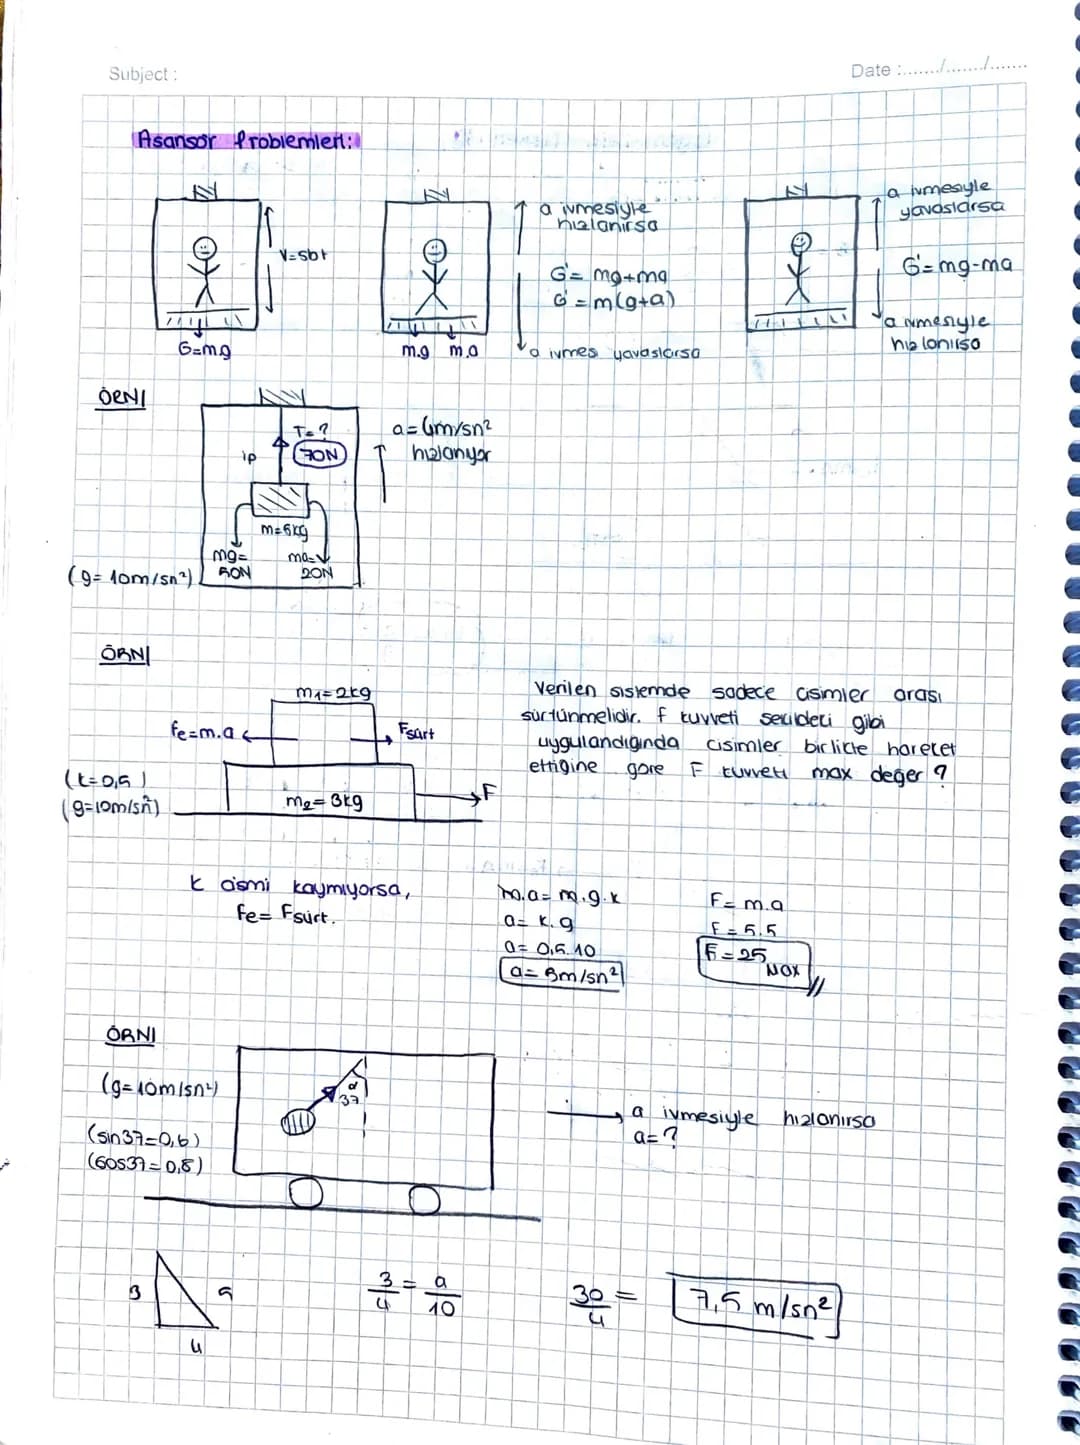 Subject :
Date :......./......./.......
Asansör Problemleri:
V=sbt
G=mg
m.g m.a
a ivmesiyle
hızlanırsa
G'= mg+ma
G' = m(g+a)
a ivmes yavaslarsa
a ivmesiyle
yavaslarsa
G'= mg-ma
a ivmesiyle
hızlanırsa
ÖRN|
T= ?
ip 70N
m=5kg
mg= ma=
50N 20N
(g= 10m/sn²)
a= 4m/sn²
hızlanıyor
ÖRN|
m₁= 2kg
fe=m.a Fsürt
(k=0,5)
(g=10m/sn²)
m₂= 3kg F
Verilen sistemde sadece cisimler arası
sürtünmelidir. F kuvveti şekildeki gibi
uygulandığında cisimler birlikte hareket
ettiğine göre F kuvveti max değer ?
K cismi kaymıyorsa,
Fe= Fsürt.
m.a= m.g.k
a= k.g
a= 0,5.10
a= 5m/sn²
F= m.a
F = 5.5
F = 25 max
ÖRN|
(g= 10m/sn²)
(sin37=0,6)
(cos37=0,8)
α
37
a ivmesiyle hızlanırsa
a= ?
3
4
3/4 = a/10
30/4 = 7,5 m/sn²